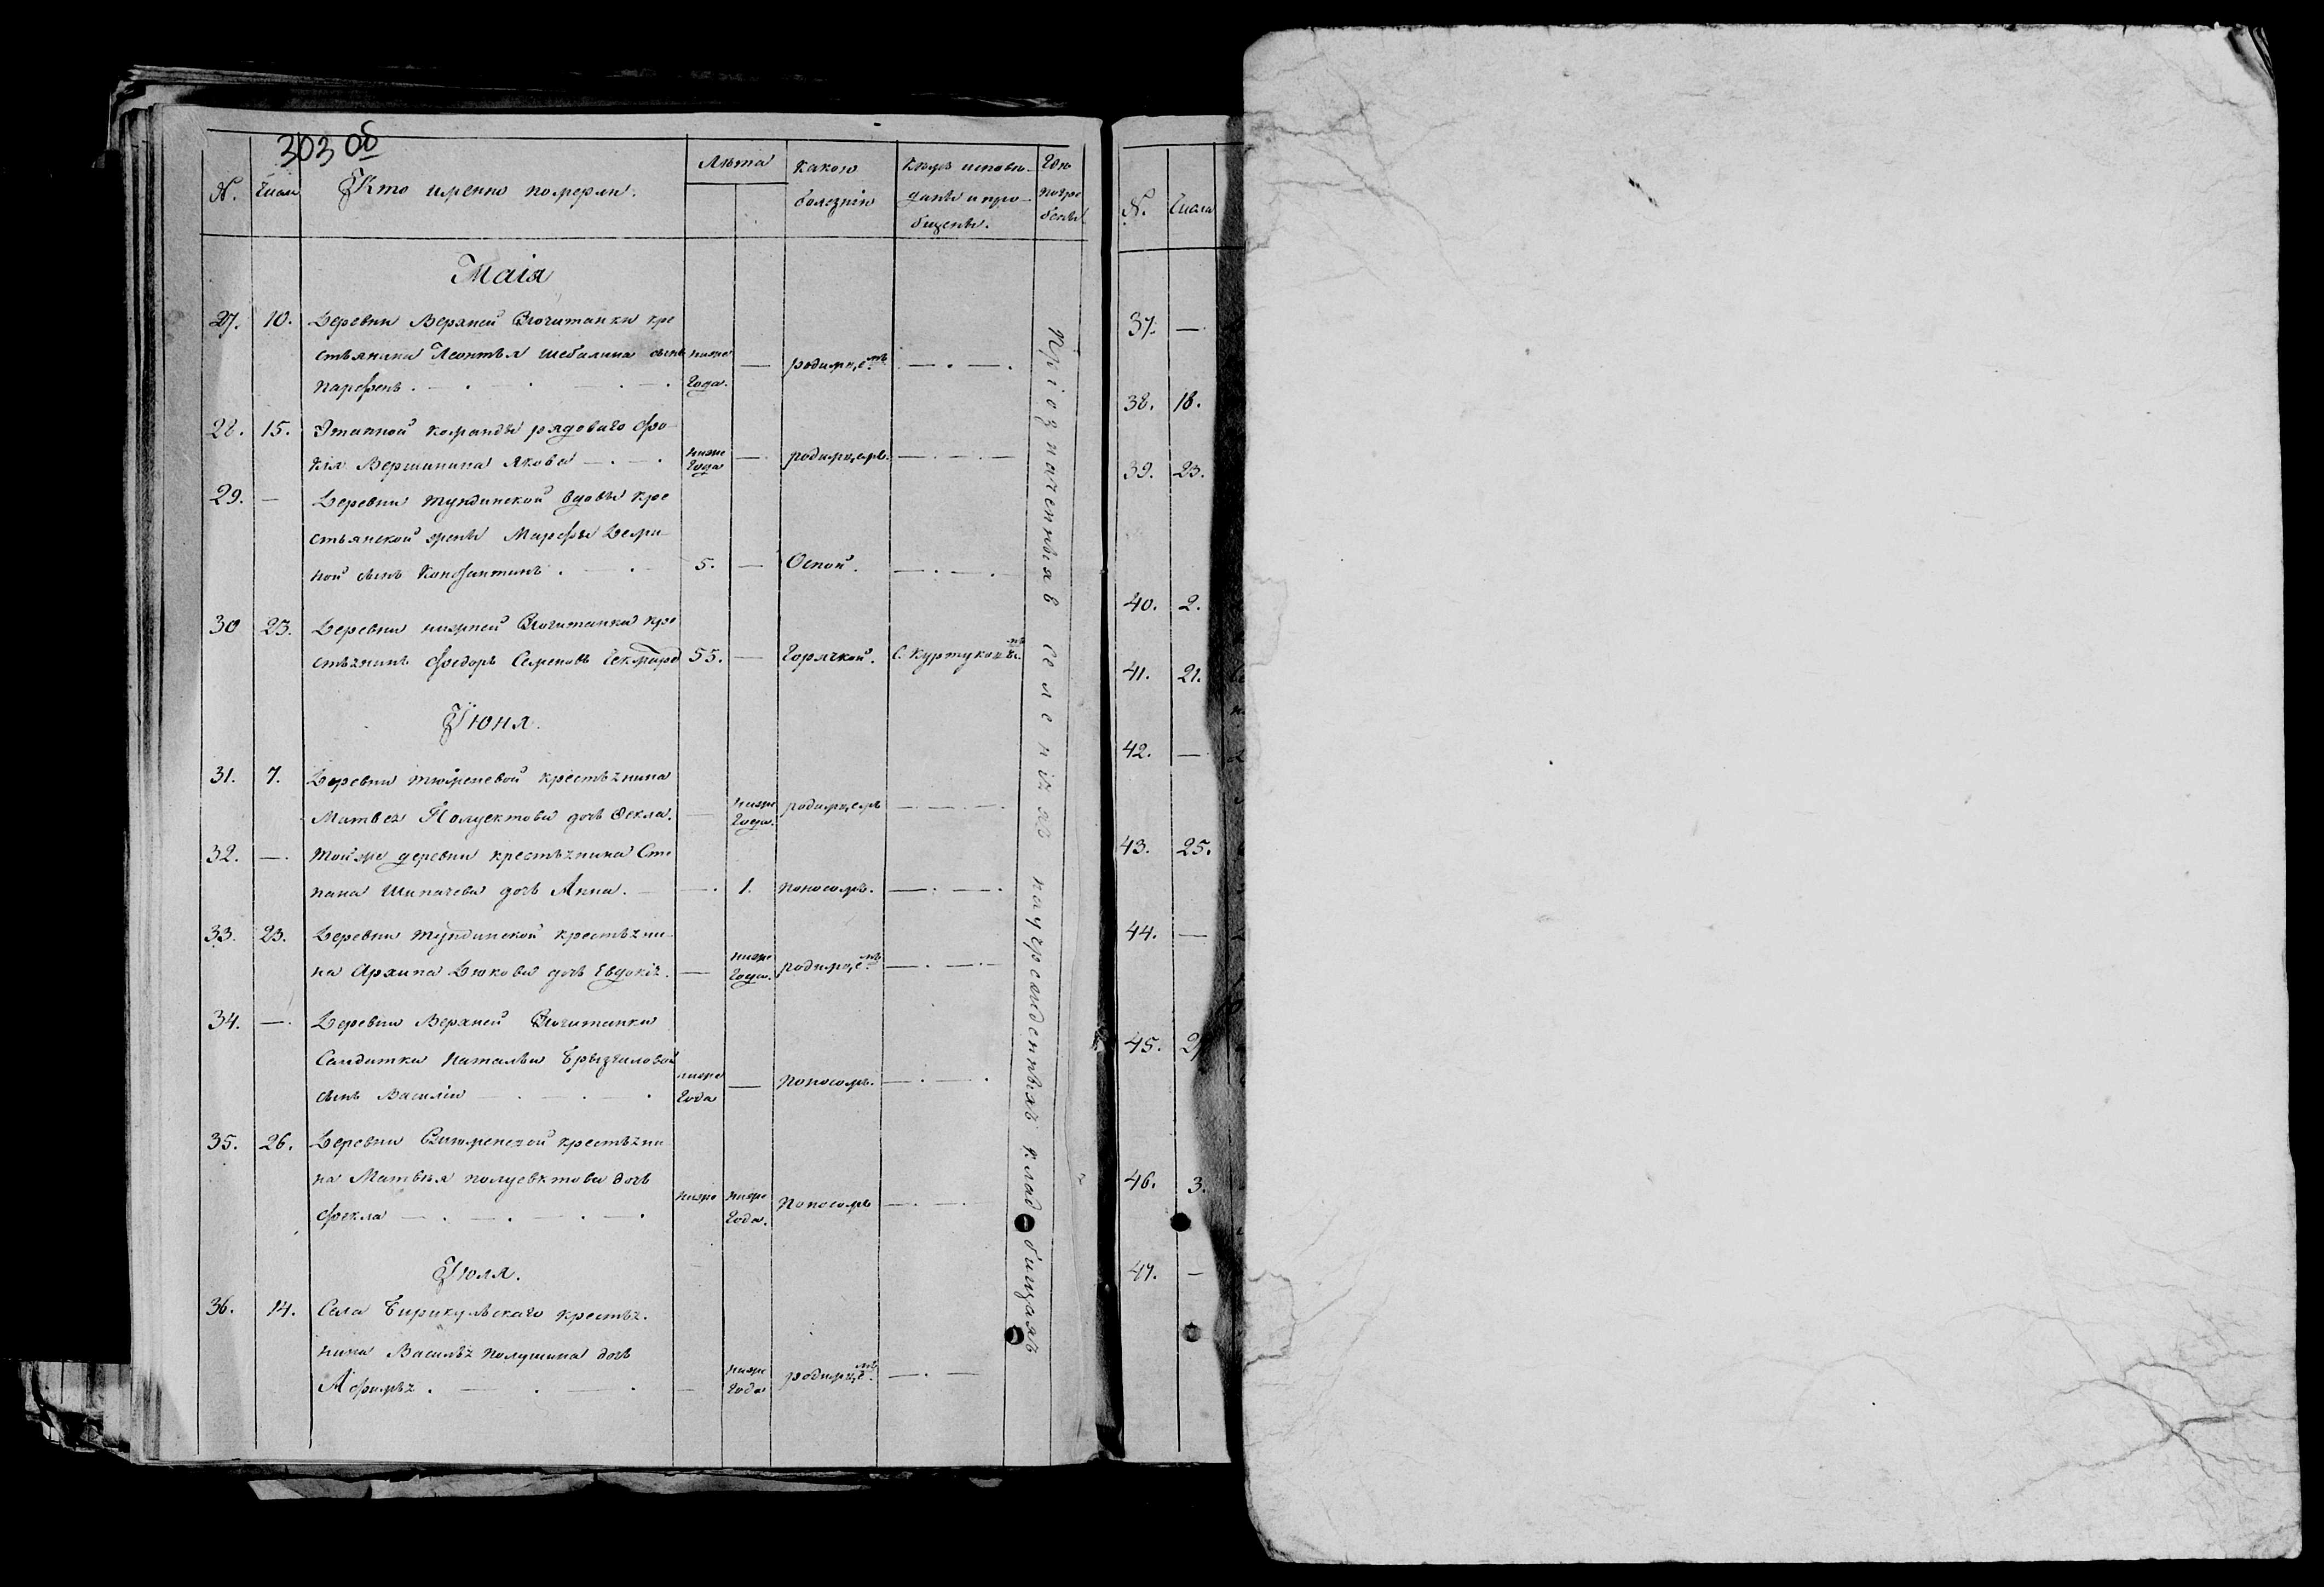 303 об
N.
Числа
Кто именно померли.
Лѣта
Какою
болезнію
Кѣмъ исповѣ-
даны и прі-
общены.
Гдѣ
погре
бены
Маія
27. 10. Деревни Верхней Почитанки кре
стьянина Леонтья Шебалина сынъ ниже
Парфенъ. года. — родимцемъ — . — .
28. 15. Этапной команды рядоваго Фо-
кія Вершинина Яковъ — . — . ниже года — родимцемъ. — . — . —
29. — Деревни Тундинской вдовы кре
стьянской жены Марфы Деми-
ной сынъ Константинъ . — . — 5. — Оспой. — . — .
30 23. Деревни нижней Почитанки кре
стьянинъ Федоръ Семеновъ 55. — Горячкой. С.
Іюня.
31. 7. Деревни Тюменевой крестьянина
Матвея Полуектова дочь Фекла. — ниже года. родимцемъ — . — . — .
32. — . Той же деревни крестьянина Сте
пана Шипачева дочь Анна. — — . 1. поносомъ. — . — .
33. 23. Деревни Тундинской крестьяни-
на Архипа Дюкова дочь Евдокія. — ниже года. родимцемъ — . — . —
34. — . Деревни Верхней Почитанки
Салдатки Натальи Брызгаловой
сынъ Василій — . — . — . ниже года — поносомъ. — . — .
35. 26. Деревни крестьяни
на Матвѣя Полуевктова дочь
Фекла — . — . — . — . ниже ниже года. Поносомъ — . — .
Іюля.
36. 14. Села Бирикульскаго крестья-
нина Василья Полушина дочь
Афимья . — . — . — ниже года родимцемъ — . —
При означенныхъ селеніяхъ на учрежденныхъ кладбищахъ
N.
Числа
37. — .
38. 18.
39. 23.
40. 2.
41. 21.
42. —
43. 25.
44. —
45.
46. 3.
47. —